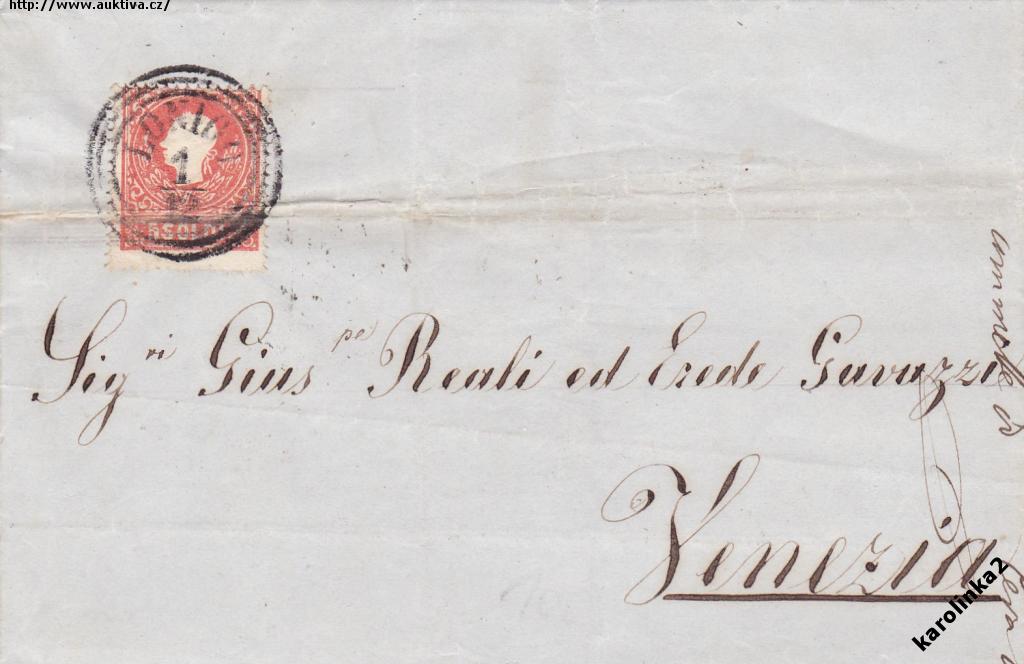 http://www.auktiva.cz/
LONIGO
1
5 SOLDI
Sigri Giuspe Reali ed Erede Gavazzi
Venezia
karolinka2